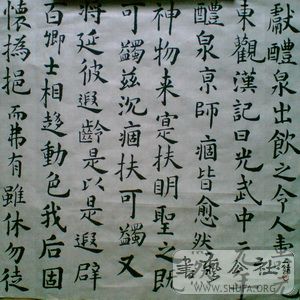 獻醴泉出飲之令人
東觀漢記曰光武中
醴泉京師痼皆愈然
神物来寔扶明聖之既
可蠲兹沉痼扶可蠲又
將延彼遐齡是以是遐辟
百卿士相趍動色我后固
懷撝挹而弗有雖休勿徒
書藝公社
WWW.SHUFA.ORG